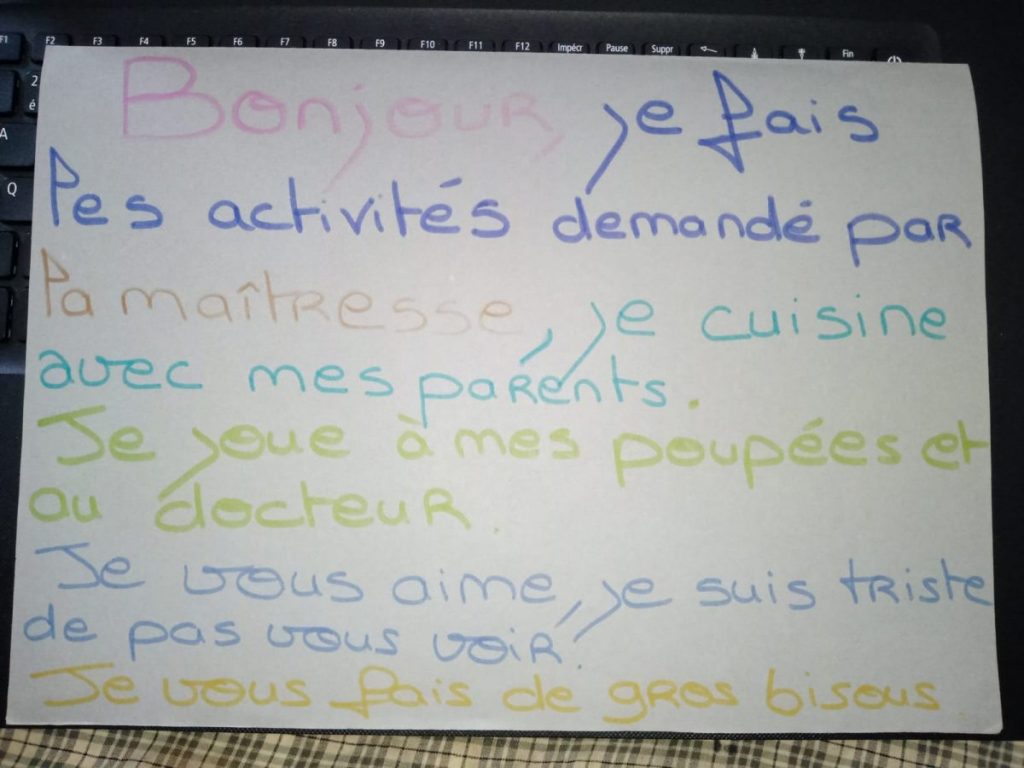 F1 F2 F3 F4 F5 F6 F7 F8 F9 F10 F11 F12 Impécr Pause Suppr Fin
2
é
A
Q
Bonjour, je fais
les activités demandé par
la maîtresse, je cuisine
avec mes parents.
Je joue à mes poupées et
au docteur.
Je vous aime, je suis triste
de pas vous voir.
Je vous fais de gros bisous